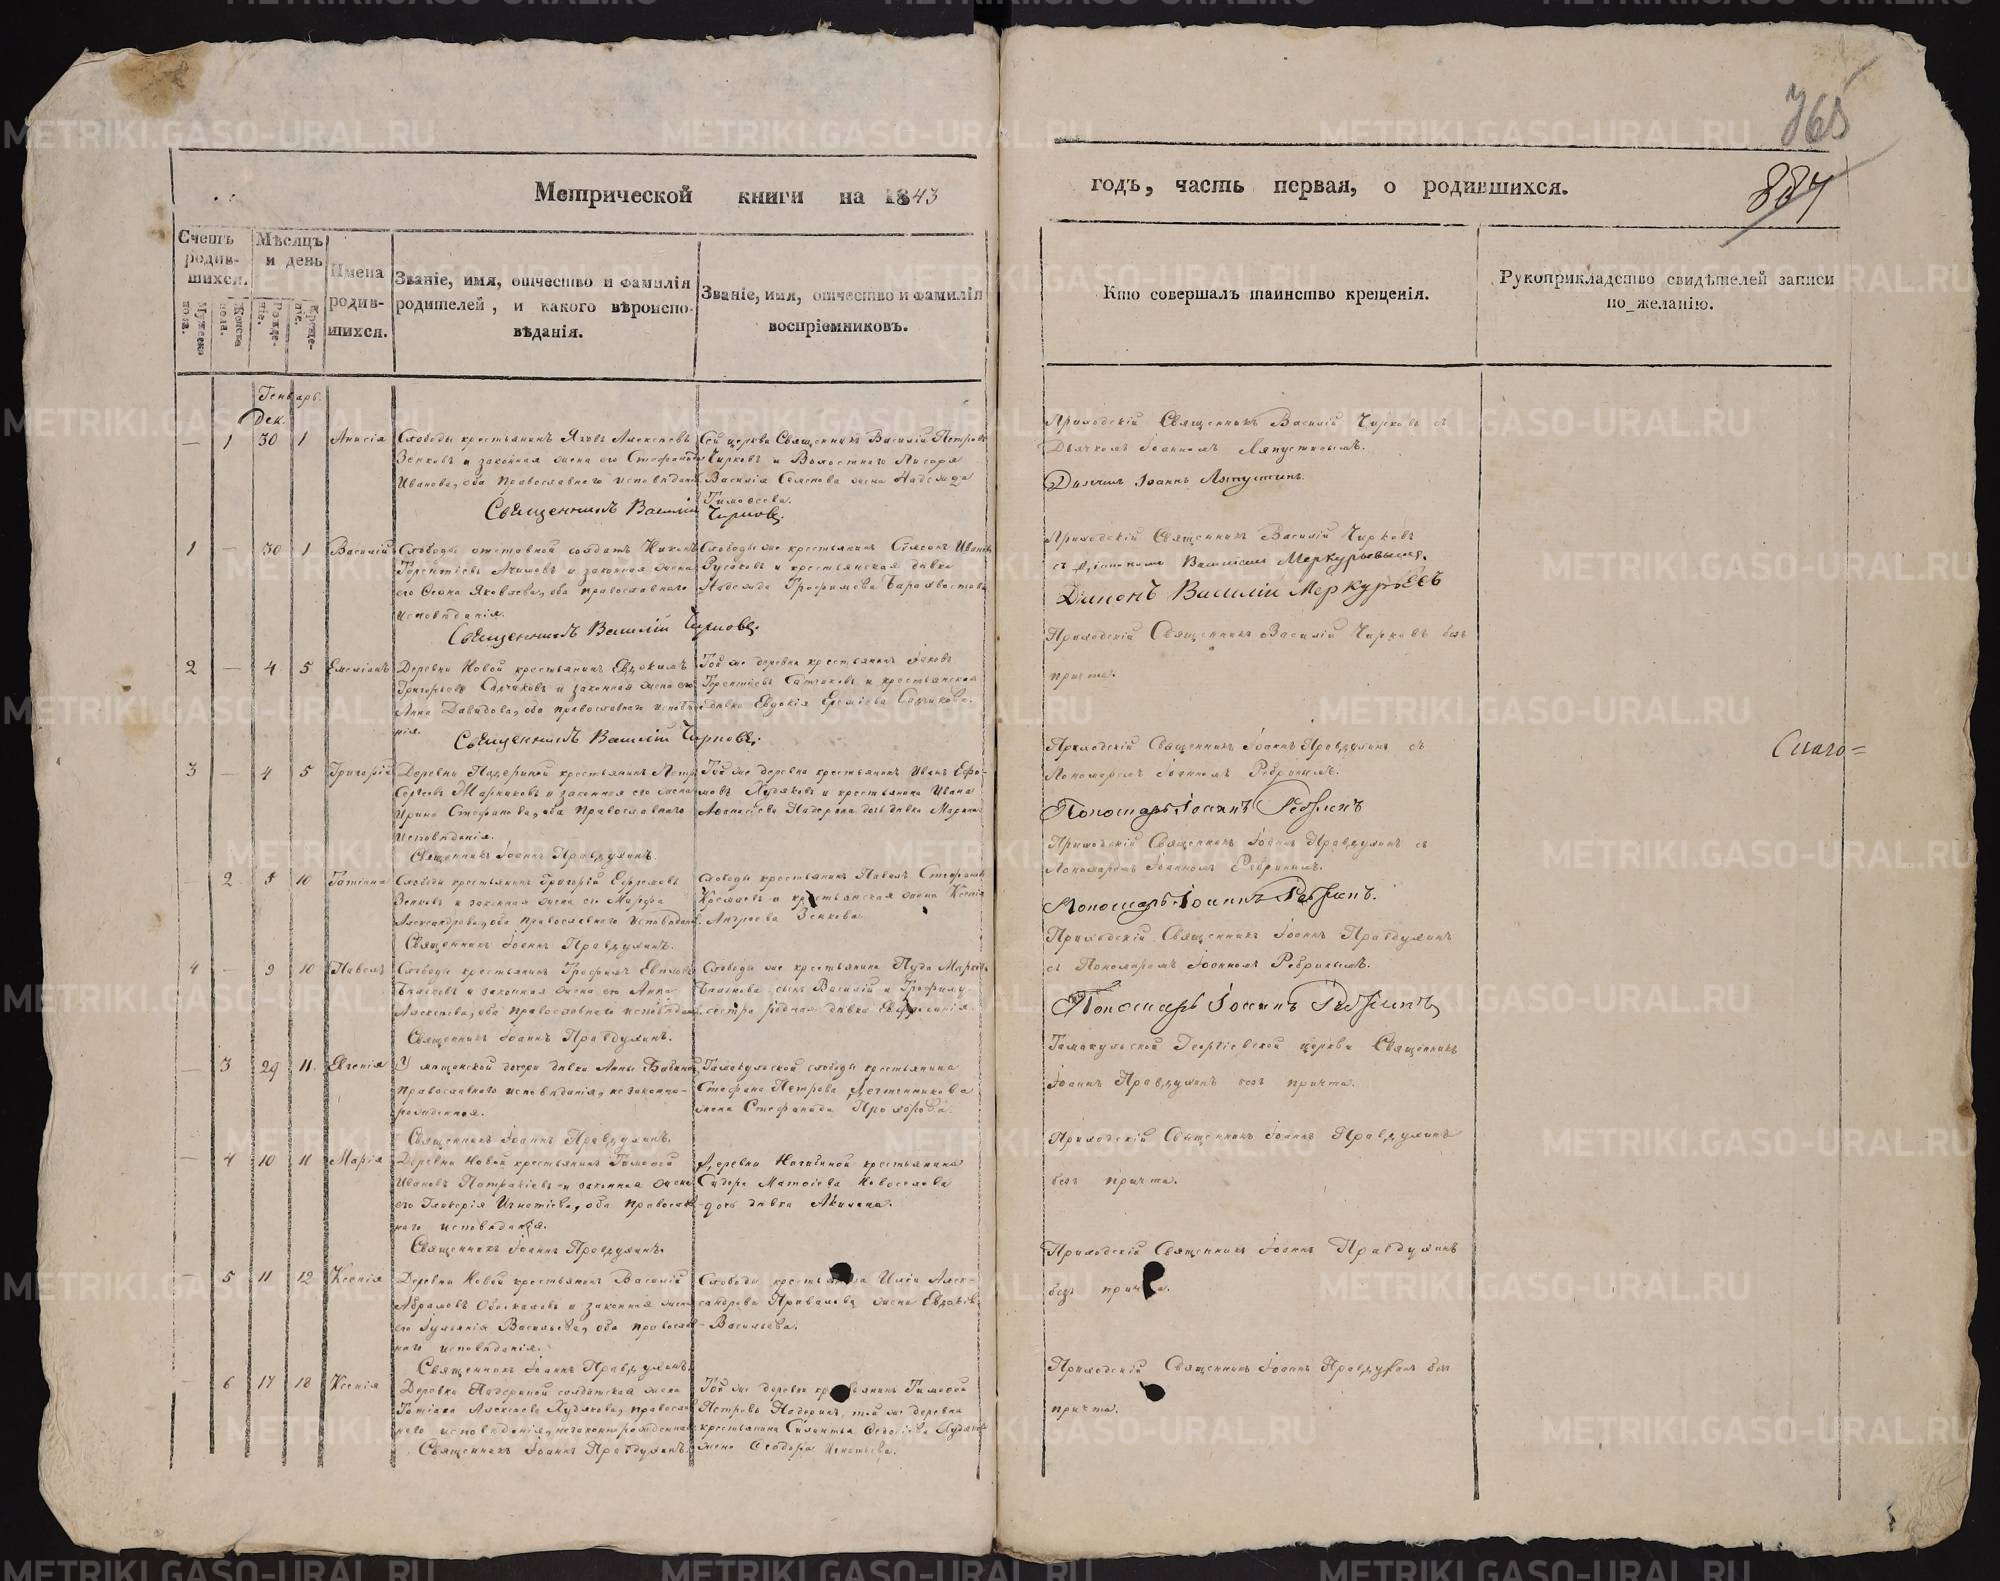 765
887
Метрической книги на 1843
годъ, часть первая, о родившихся.
Счетъ родившихся.
Мужеска пола.
Женска пола.
Мѣсяцъ и день
Рожденіе.
Крещеніе.
Имена родившихся.
Званіе, имя, отчество и фамилія
родителей, и какого вѣроиспо-
вѣданія.
Званіе, имя, отчество и фамилія
воспріемниковъ.
Кто совершалъ таинство крещенія.
Рукоприкладство свидѣтелей записи
по желанію.
Генварь.
Дек.
— 1 30 1 Анисія
Слободы крестьянинъ Яковъ Алексѣевъ
Зенковъ и законная жена его Стефанида
Иванова, оба православнаго исповѣданія
Священникъ Василій Чирковъ.
Сей церкви Священникъ Василій Петровъ
Чирковъ и Волостнаго Писаря
Василія Семенова жена Надежда
Тимоѳеева.
Приходскій Священникъ Василій Чирковъ съ
Дьячкомъ Іоанномъ Ляпустинымъ.
Дьячекъ Іоаннъ Ляпустинъ.
1 — 30 1 Василій
Слободы отставной солдатъ Никонъ
Терентіевъ и законная жена
его Яковлева, оба православнаго
исповѣданія.
Священникъ Василій Чирковъ.
Слободы же крестьянинъ Иванъ
Русаковъ и крестьянская дѣвка
Надежда Трофимова
Приходскій Священникъ Василій Чирковъ
съ Діакономъ Василіемъ Меркурьевымъ.
Діаконъ Василій Меркурьевъ
2 — 4 5 Емеліанъ
Деревни Новой крестьянинъ Евдокимъ
Григорьевъ Садчиковъ и законная жена его
Анна Давидова, оба православнаго исповѣда-
нія.
Священникъ Василій Чирковъ.
Той же деревни крестьянинъ Іаковъ
Терентіевъ и крестьянская
дѣвка Евдокія Еремѣева Садчикова.
Приходскій Священникъ Василій Чирковъ безъ
причта.
3 — 4 5 Григорій
Деревни Падериной крестьянинъ Петръ
Сергѣевъ и законная его жена
Ирина Стефанова, оба Православнаго
исповѣданія.
Священникъ Іоаннъ Правдухинъ.
Той же деревни крестьянинъ Иванъ Ефи-
мовъ Худяковъ и крестьянина Ивана
Аѳанасіева Падерина дочь дѣвка Марина
Приходскій Священникъ Іоаннъ Правдухинъ съ
Пономаремъ Іоанномъ Ребринымъ.
Пономарь Іоаннъ Ребринъ
— 2 5 10 Татіана
Слободы крестьянинъ Григорій Ефремовъ
Зенковъ и законная жена его Марфа
Александрова, оба православнаго исповѣданія.
Священникъ Іоаннъ Правдухинъ.
Слободы крестьянинъ Павелъ Стефановъ
и крестьянская жена Ксенія
Андреева Зенкова.
Приходскій Священникъ Іоаннъ Правдухинъ съ
Пономаремъ Іоанномъ Ребринымъ.
Пономарь Іоаннъ Ребринъ.
4 — 9 10 Павелъ
Слободы крестьянинъ Трофимъ
и законная жена его Анна
Алексѣева, оба православнаго исповѣданія.
Священникъ Іоаннъ Правдухинъ.
Слободы же крестьянина Пуда
сынъ Василій и Трофиму
сестра родная дѣвка
Приходскій Священникъ Іоаннъ Правдухинъ
съ Пономаремъ Іоанномъ Ребринымъ.
Пономарь Іоаннъ Ребринъ
— 3 29 11 Евгенія
У мѣщанской дочери дѣвки Анны
православнаго исповѣданія, незаконно-
рожденная.
Священникъ Іоаннъ Правдухинъ.
Тамакульской слободы крестьянина
Стефана Петрова
жена Стефанида Прохорова.
Тамакульской Георгіевской церкви Священникъ
Іоаннъ Правдухинъ безъ причта.
— 4 10 11 Марія
Деревни Новой крестьянинъ Тимоѳей
Ивановъ и законная жена
его Гликерія Игнатіева, оба православ-
наго исповѣданія.
Священникъ Іоаннъ Правдухинъ.
Деревни крестьянина
Сидора Матвѣева Новоселова
дочь дѣвка Акилина.
Приходскій Священникъ Іоаннъ Правдухинъ
безъ причта.
— 5 11 12 Ксенія
Деревни Новой крестьянинъ Василій
Абрамовъ и законная жена
его Іуліанія Васильева, оба православ-
наго исповѣданія.
Священникъ Іоаннъ Правдухинъ.
Слободы крестьянина Иліи Алек-
сандрова Привалова жена Евдокія
Васильева.
Приходскій Священникъ Іоаннъ Правдухинъ
безъ причта.
— 6 17 18 Ксенія
Деревни Падериной солдатская жена
Татіана Алексѣева Худякова, православ-
наго исповѣданія, незаконнорожденная
Священникъ Іоаннъ Правдухинъ.
Той же деревни крестьянинъ Тимоѳей
Петровъ Падеринъ, той же деревни
крестьянина Силантья Ѳедосіева Худякова
жена Ѳеодора Игнатьева.
Приходскій Священникъ Іоаннъ Правдухинъ безъ
причта.
METRIKI.GASO-URAL.RU